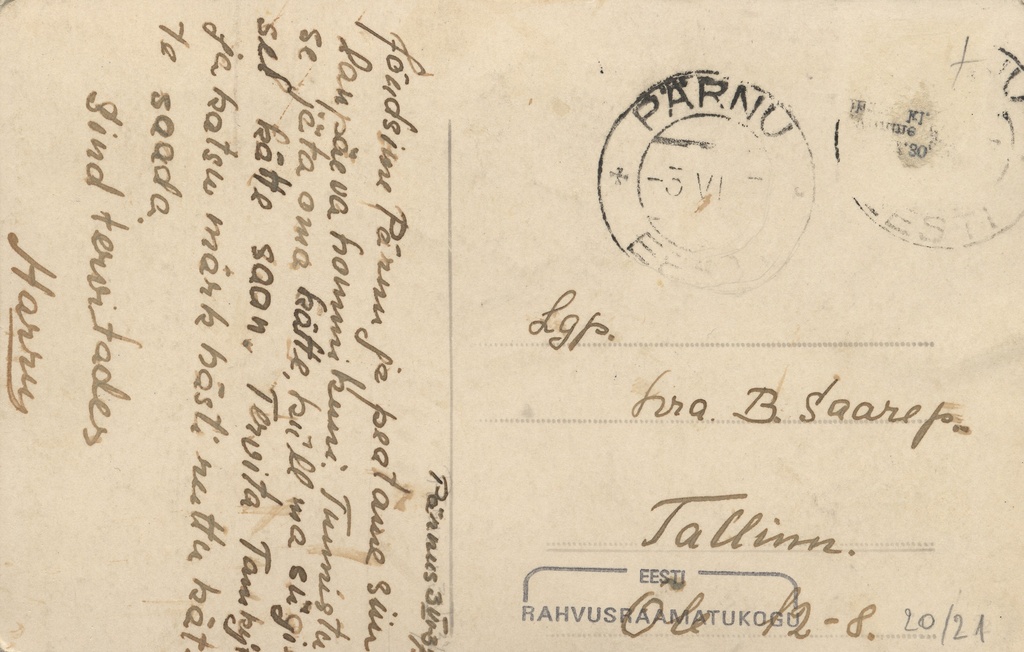 Pärnus 3
Jõudsime Pärnu ja peatame siin
laupäeva hommikuni. Tunnistu
se jäta oma kätte, küll ma sügi
sel kätte saan. Tervita
ja katsu märk hästi ruttu kät
te saada
Sind tervitades
Harry
PÄRNU
-3 VI
EESTI
EESTI
'30
Lgp.
hra. B. Saarep.
Tallinn.
12-8.
20/21
EESTI
RAHVUSRAAMATUKOGU